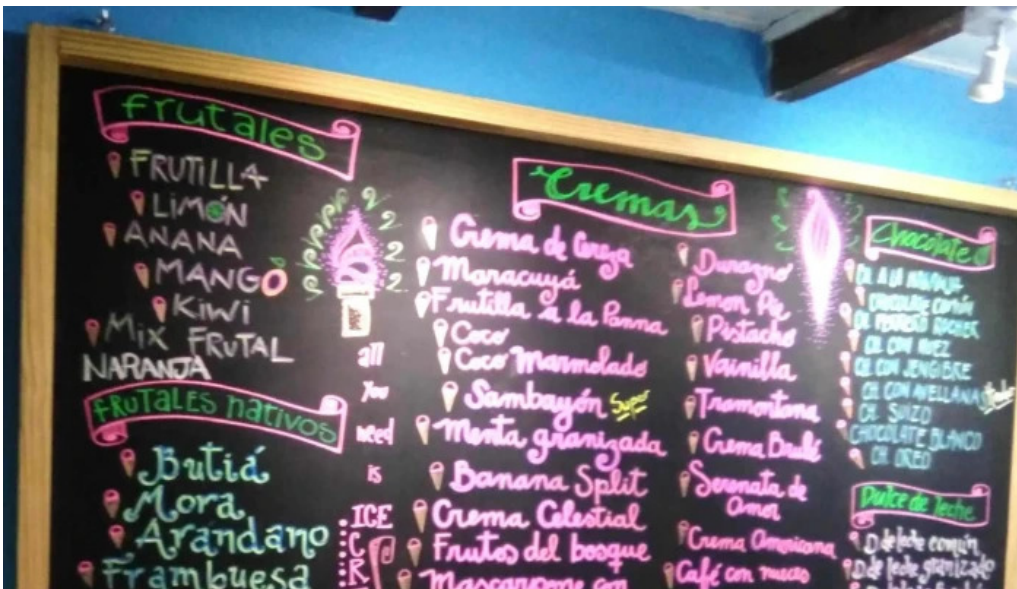 frutales
FRUTILLA
LIMÓN
ANANA
MANGO
KIWI
MIX FRUTAL
NARANJA
FRUTALES nativos
Butiá
Mora
Arándano
Frambuesa
all
you
need
is
ICE
C
R
Cremas
Crema de Cereza
Maracuyá
Frutilla a la Panna
Coco
Coco Marmolado
Sambayón Super
Menta granizada
Banana Split
Crema Celestial
Frutos del bosque
Mascarpone con
Durazno
Lemon Pie
Pistacho
Vainilla
Tramontana
Crema Brulé
Serenata de
Amor
Crema Americana
Café con nueces
Chocolate
CH. A LA NARANJA
CHOCOLATE COMÚN
CH.
CH. CON NUEZ
CH. CON JENGIBRE
CH. CON AVELLANA
CH. SUIZO
CHOCOLATE BLANCO
CH. OREO
Dulce de leche
D de leche común
D de leche granizado